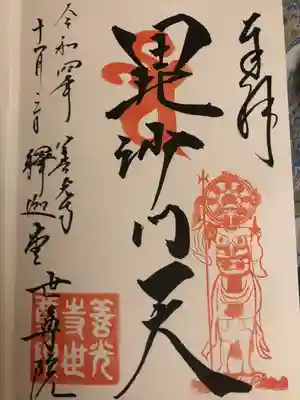 奉拝
毘沙門天
令和四年
十一月三日
善光寺
釋迦堂
世尊院
善光
寺世
尊院